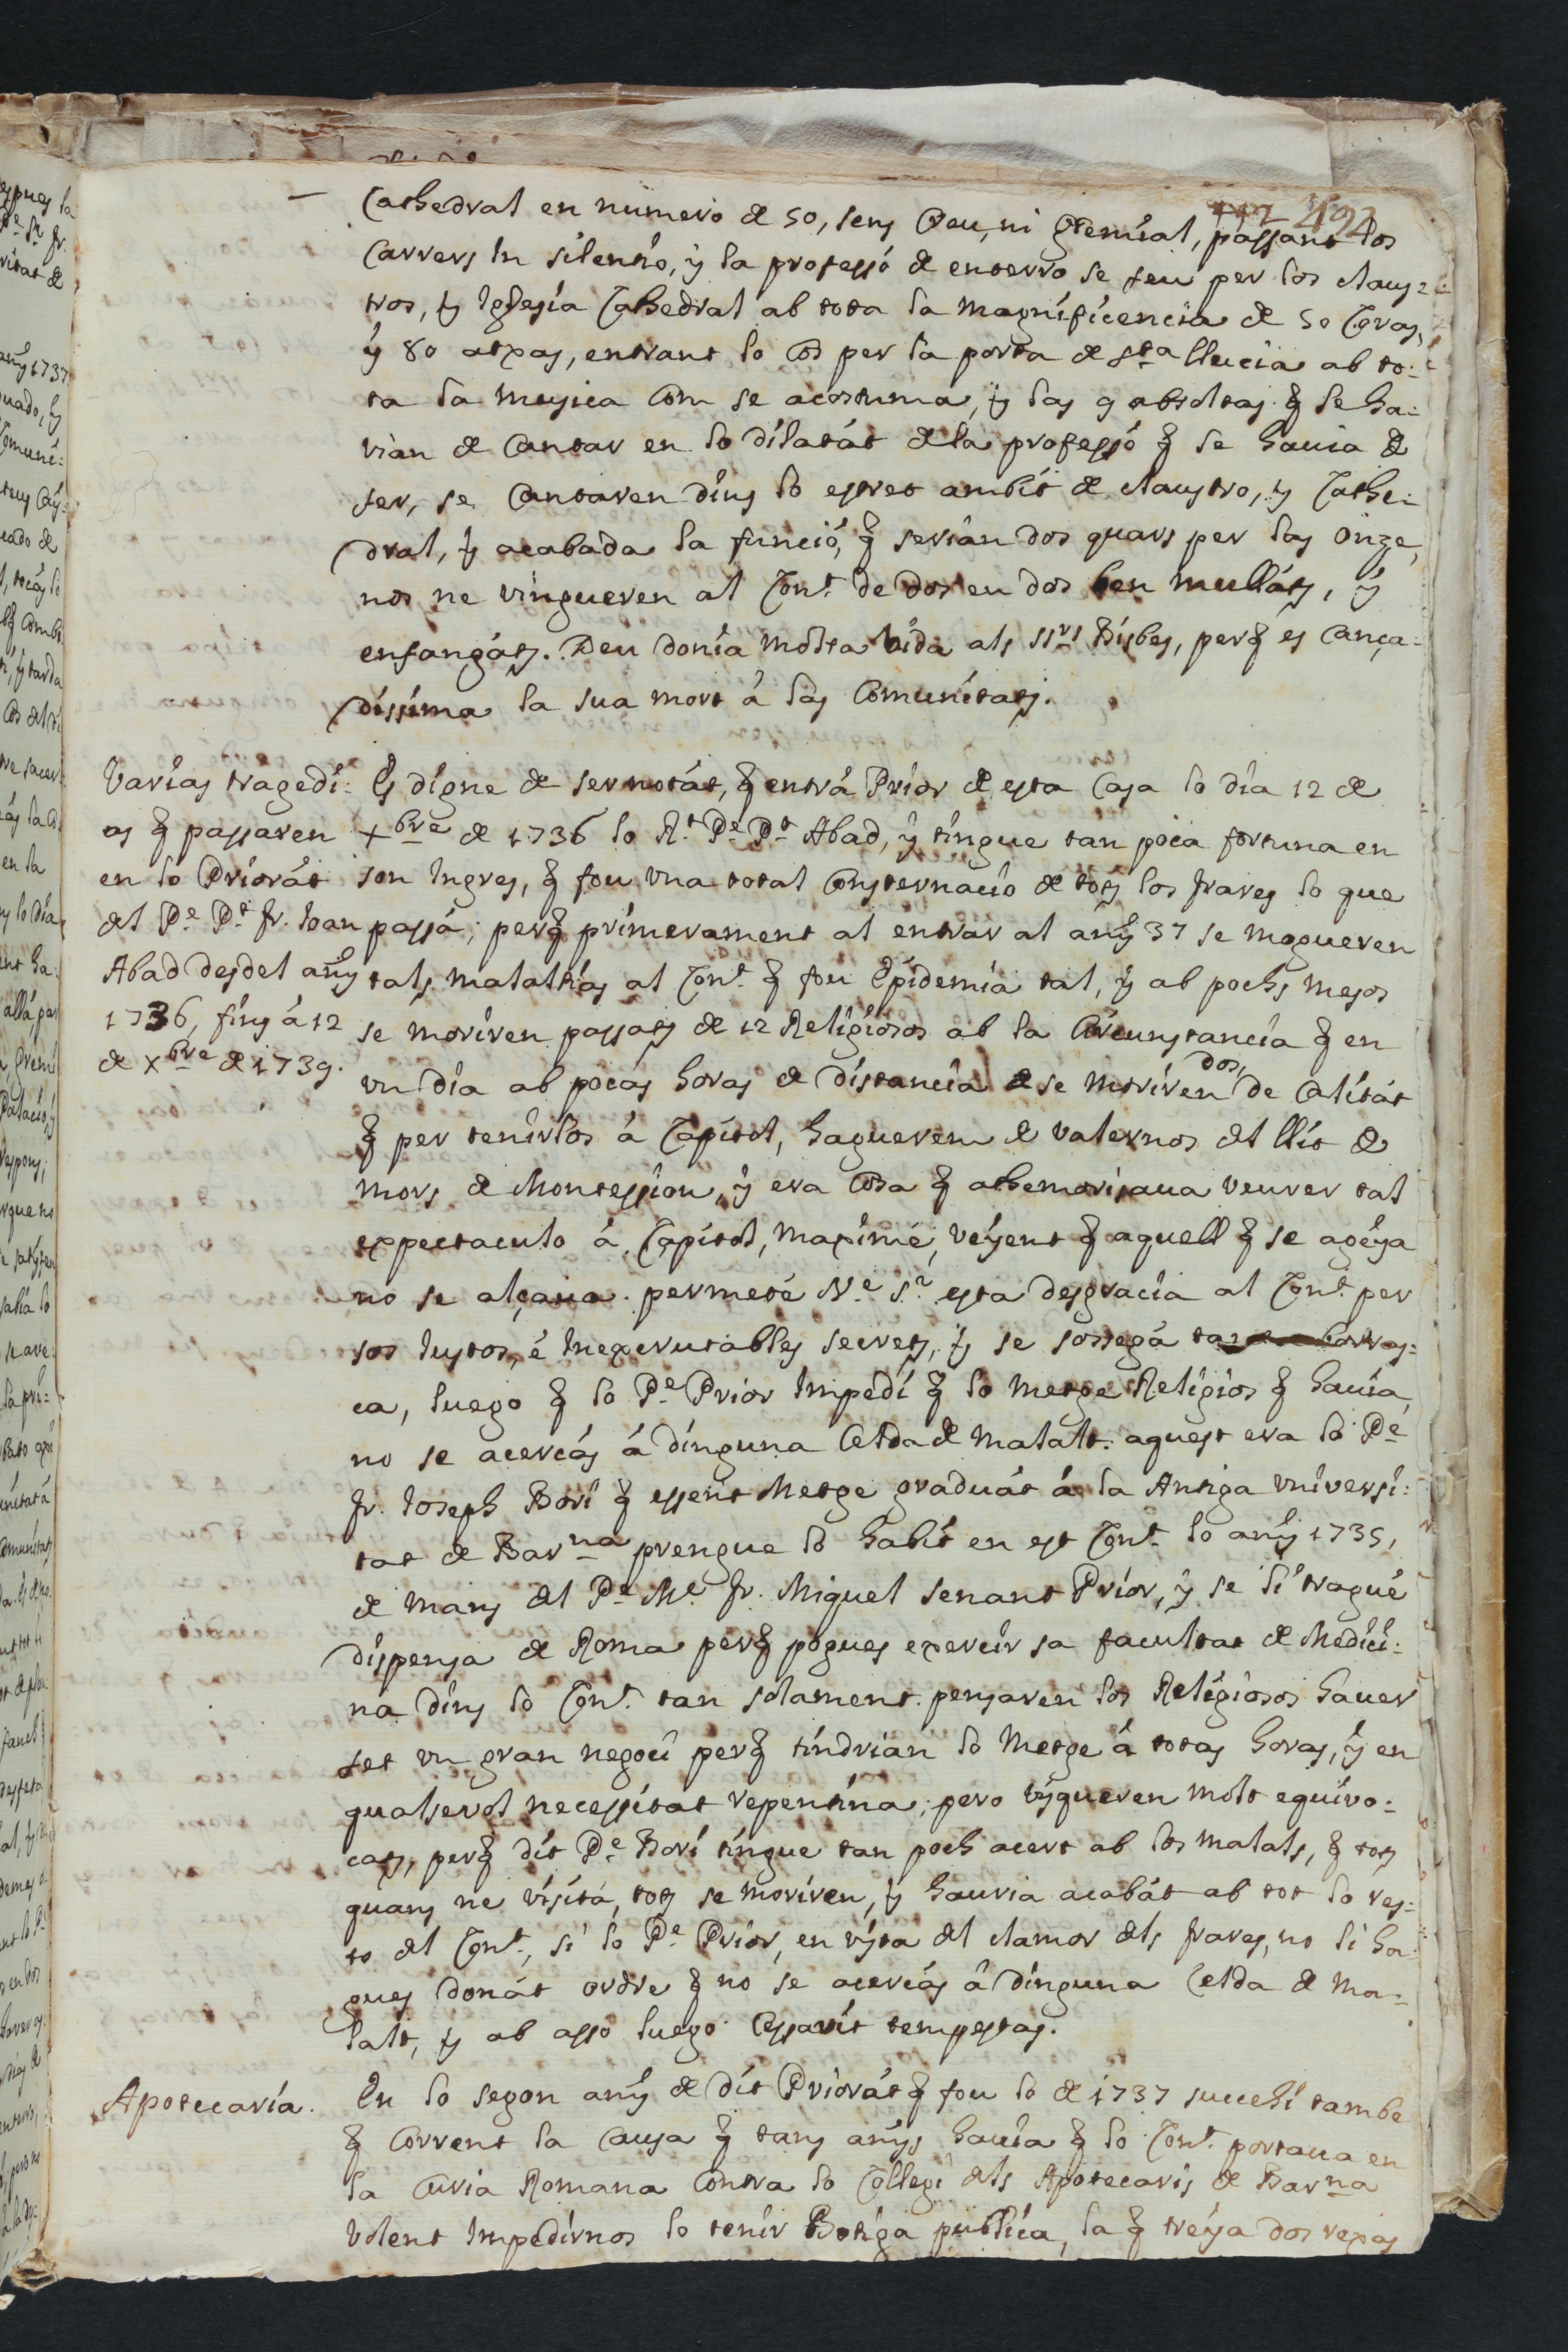 442 492
Cathedral en numero de 50, sens Creu, ni Gremial, passant los
Carrers in silentio, y la professó de enterro se feu per los claus=
tros, y Iglesia Cathedral ab tota la magnificencia de 50 Ceras,
y 80 atxas, entrant lo Cos per la porta de Sta. Llucia ab to=
ta la musica Com se acostuma, y las 9 absoltas q̃ se ha=
vian de Cantar en lo dilatát de la professó q̃ se havia de
fer, se Cantaren dins lo estret ambit de claustro, y Cathe=
dral, y acabada la funció, q̃ serian dos quars per las onze,
nos ne vingueren al Cont. de dos en dos ben mulláts, y
enfangáts. Deu donia molta vida als SSrs. Bisbes, perq̃ es Cança=
dissima la sua mort á las Comunitats.
Varias tragedi=
as q̃ passaren
en lo Priorát
del Pe. Pt. Fr. Joan
Abad desdel añy
1736, fins á 12
de Xbre de 1739.
Es digne de ser notát, q̃ entrá Prior de esta Casa lo dia 12 de
Xbre de 1736 lo Rt. Pe. Pt. Abad, y tingue tan poca fortuna en
son Ingres, q̃ fou una total Consternació de tots los frares lo que
passá; perq̃ primerament al entrar al añy 37 se mogueren
tals malaltias al Cont. q̃ fou Epidemia tal, y ab pochs mesos
se moriren passats de 12 Religiosos ab la Circunstancia q̃ en
un dia ab pocas horas de distancia se moriren dos, de Calitát
q̃ per tenirlos á Capitol, haguerem de valernos del llit de
mors de Montession, y era Cosa q̃ athemorisava veurer tal
expectaculo á Capitol, maximé, veyent q̃ aquell q̃ se ageya
no se alçava. permeté Ne. Sr. esta desgracia al Cont. per
sos Justos, é Inexcrutables secrets, y se sossegá ta borras=
ca, luego q̃ lo Pe. Prior Impedí q̃ lo metge Religios q̃ havia,
no se acercás á dinguna Celda de malalt. aquest era lo Pe.
Fr. Joseph Borí q̃ essent Metge graduát á la Antiga Universi=
tat de Barna. prengue lo habit en est Cont. lo añy 1735,
de mans del Pe. Me. Fr. Miquel Senant Prior, y se li tragué
dispensa de Roma perq̃ pogues exercir sa facultat de Medici=
na dins lo Cont. tan solament. pensaren los Religiosos haver
fet un gran negoci perq̃ tindrian lo Metge á totas horas, y en
qualsevol necessitat repentina; pero isqueren molt equivo=
cats, perq̃ dit Pe. Borí tingue tan poch acert ab los malals, q̃ tots
quans ne visitá, tots se moriren, y hauria acabát ab tot lo res=
to del Cont., si lo Pe. Prior, en vista del clamor dels frares, no li ha=
gues donát ordre q̃ no se acercás á dinguna Celda de Ma=
lalt, y ab asso luego Cessavit tempestas.
Apotecaria.
En lo segon añy de dit Priorát q̃ fou lo de 1737 succehí tambe
q̃ Corrent la Causa q̃ tans añys havia q̃ lo Cont. portava en
la Curia Romana Contra lo Collegi dels Apotecaris de Barna.
Volent Impedirnos lo tenir Botiga publica, la q̃ treya dos rexas